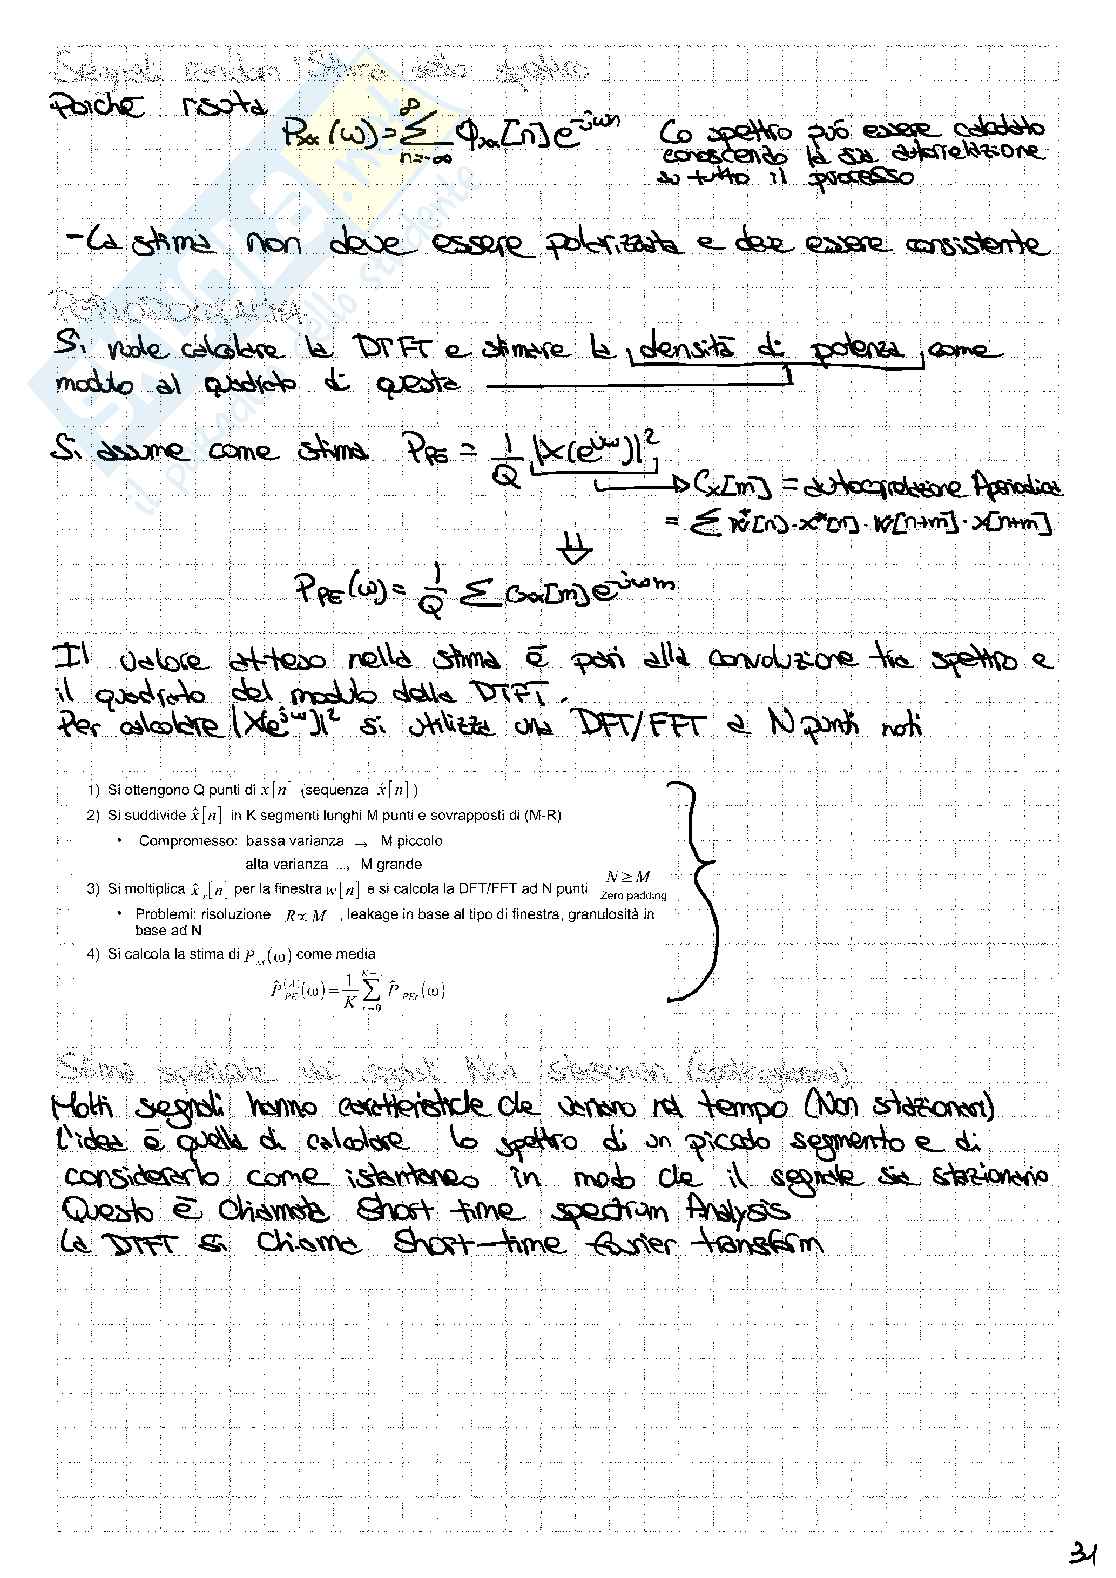 Segnali random
Poiché risulta
Pxx(ω) = Σ_{n=-∞}^{∞} Φxx[n] e^{-jωn}
Lo spettro può essere calcolato
conoscendo la sua autorrelazione
su tutto il processo
- La stima non deve essere polarizzata e deve essere consistente
Periodogramma
Si vuole calcolare la DTFT e stimare la densità di potenza come
modulo al quadrato di questa
Si assume come stima P_PE = 1/Q |X(e^{jω})|²
Cx[m] = autocorrelazione Aperiodica
= Σ w*[n] · x*[n] · w[n+m] · x[n+m]
⇓
P_PE(ω) = 1/Q Σ Cxx[m] e^{-jωm}
Il valore atteso nella stima è pari alla convoluzione tra spettro e
il quadrato del modulo della DTFT.
Per calcolare |X(e^{jω})|² si utilizza una DFT/FFT a N punti noti
1) Si ottengono Q punti di x[n] (sequenza x̂[n])
2) Si suddivide x̂[n] in K segmenti lunghi M punti e sovrapposti di (M-R)
• Compromesso: bassa varianza → M piccolo
alta varianza → M grande
3) Si moltiplica x̂_r[n] per la finestra w[n] e si calcola la DFT/FFT ad N punti N ≥ M
Zero padding
• Problemi: risoluzione R∝M, leakage in base al tipo di finestra, granulosità in
base ad N
4) Si calcola la stima di P_xx(ω) come media
P̂_PE(ω) = 1/K Σ_{r=0}^{K-1} P̂_PEr(ω)
Stima spettrale di segnali Non stazionari (spettrogramma)
Molti segnali hanno caratteristiche che variano nel tempo (Non stazionari)
L'idea è quella di calcolare lo spettro di un piccolo segmento e di
considerarlo come istantaneo in modo che il segnale sia stazionario
Questo è chiamata Short time spectrum Analysis
La DTFT si chiama Short-time fourier transform
31